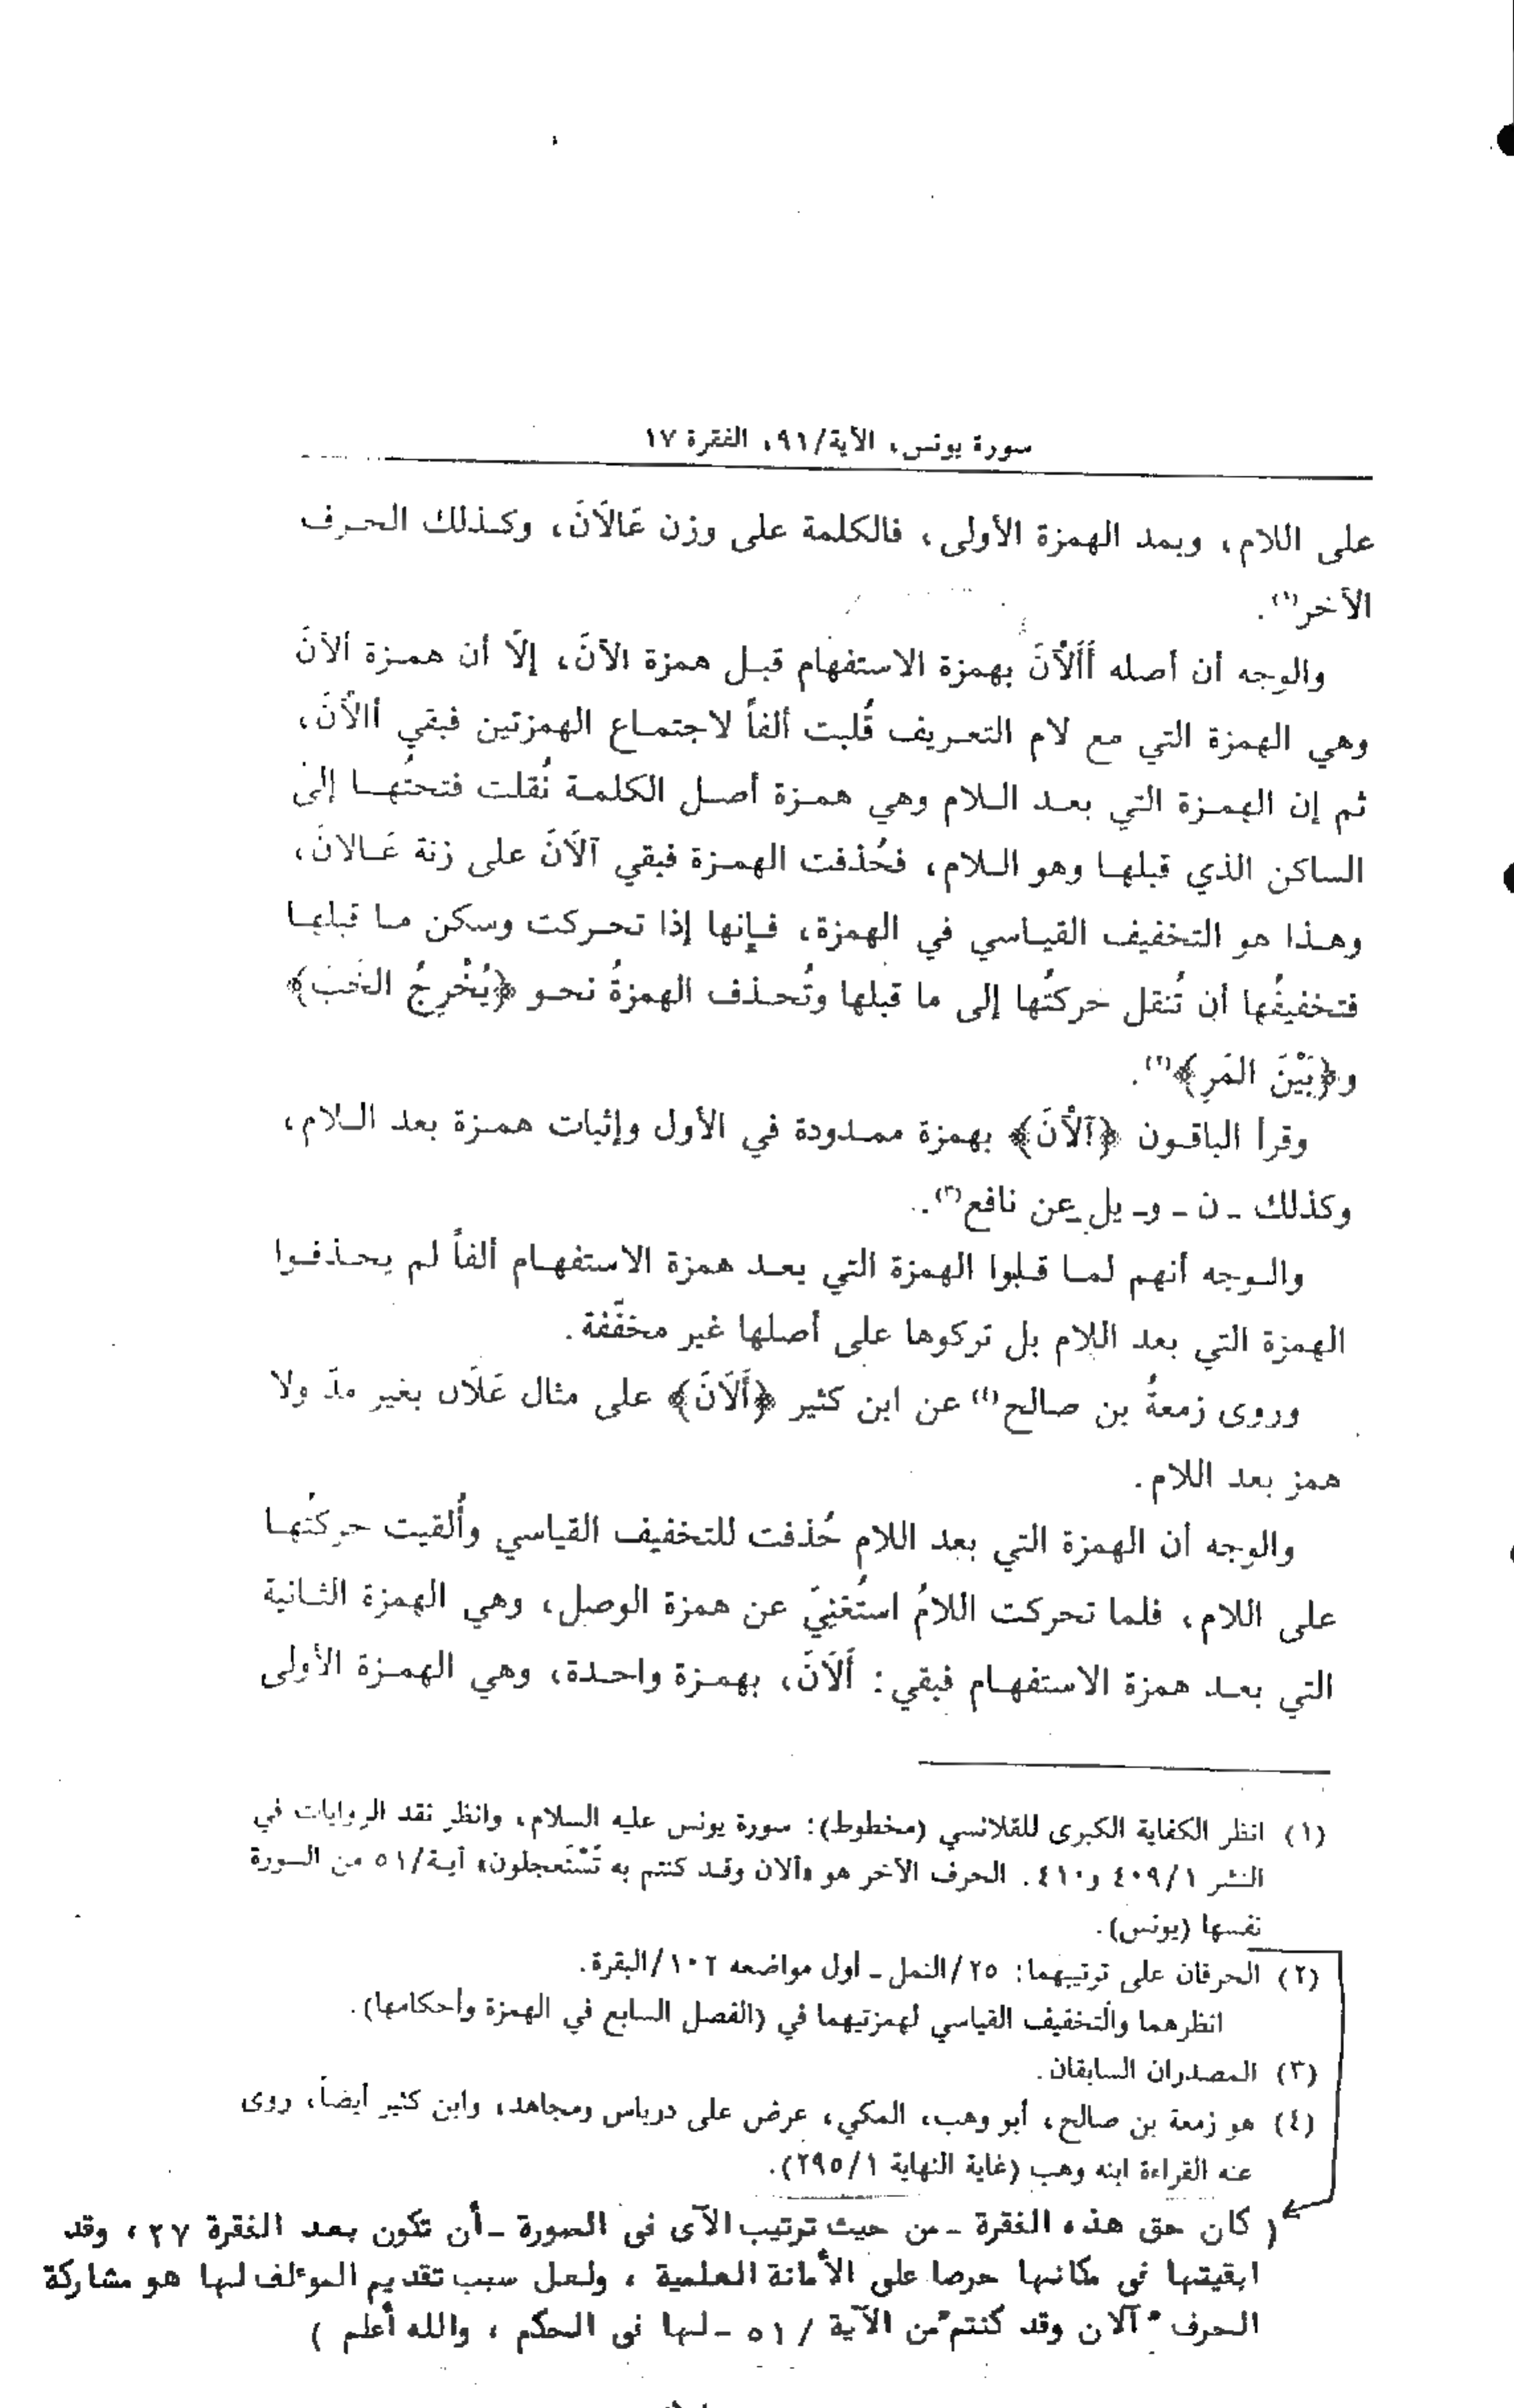 سورة يونس، الآية/٩١، الفقرة ١٧
على اللام، وبمد الهمزة الأولى، فالكلمة على وزن عَالاَنَ، وكـذلك الحـرف
الآخر(١).
والوجه أن أصله أَأَلْأَنَ بهمزة الاستفهام قبـل همزة الآنَ، إلاّ أن همـزة ألآنَ
وهي الهمزة التي مع لام التعـريف قُلبت ألفاً لاجتمـاع الهمزتين فبقي أالْأَنَ،
ثم إن الهمـزة التي بعـد الـلام وهي همـزة أصـل الكلمـة نُقلت فتحتُهـا إلىٰ
الساكن الذي قبلهـا وهو الـلام، فحُذفت الهمـزة فبقي آلَانَ على زنة عَـالانَ،
وهـذا هو التخفيف القيـاسي في الهمزة، فـإنها إذا تحـركت وسكن مـا قبلهـا
فتخفيفُها أن تُنقل حركتُها إلى ما قبلها وتُحـذف الهمزةُ نحـو ﴿يُخْرِجُ الخَبَ﴾
و﴿بَيْنَ المَرِ﴾(٢).
وقرأ الباقـون ﴿آلْأَنَ﴾ بهمزة ممـدودة في الأول وإثبات همـزة بعد الـلام،
وكذلك ـ ن ـ و ـ يل ـ عن نافع(٣).
والـوجه أنهم لمـا قـلبوا الهمزة التي بعـد همزة الاستفهـام ألفاً لم يحـذفـوا
الهمزة التي بعد اللام بل تركوها على أصلها غير مخفّفة.
وروى زمعةُ بن صالح(٤) عن ابن كثير ﴿أَلَانَ﴾ على مثال عَلَان بغير مدّ ولا
همز بعد اللام.
والوجه أن الهمزة التي بعد اللام حُذفت للتخفيف القياسي وأُلقيت حركتُهـا
على اللام، فلما تحركت اللامُ استُغنِيَ عن همزة الوصل، وهي الهمزة الثـانية
التي بعـد همزة الاستفهـام فبقي: أَلَانَ، بهمـزة واحـدة، وهي الهمـزة الأولى
(١) انظر الكفاية الكبرى للقلانسي (مخطوط): سورة يونس عليه السلام، وانظر نقد الروايات في
النشر ٤٠٩/١ و٤١٠. الحرف الآخر هو «آلان وقـد كنتم به تَسْتَعجلون» آيـة/٥١ من السورة
نفسها (يونس).
(٢) الحرفان على ترتيبهما: ٢٥/النمل ـ أول مواضعه ١٠٢/البقرة.
انظرهما والتخفيف القياسي لهمزتيهما في (الفصل السابع في الهمزة وأحكامها).
(٣) المصدران السابقان.
(٤) هو زمعة بن صالح، أبو وهب، المكي، عرض على درباس ومجاهد، وابن كثير أيضاً، روى
عنه القراءة ابنه وهب (غاية النهاية ٢٩٥/١).
( كان حق هذه الفقرة ـ من حيث ترتيب الآى فى السورة ـ أن تكون بعد الفقرة ٢٧ ، وقد
ابقيتها فى مكانها حرصا على الأمانة العلمية ، ولعل سبب تقديم المؤلف لها هو مشاركة
الحرف " آلان وقد كنتم" من الآية / ٥١ ـ لها فى الحكم ، والله أعلم )